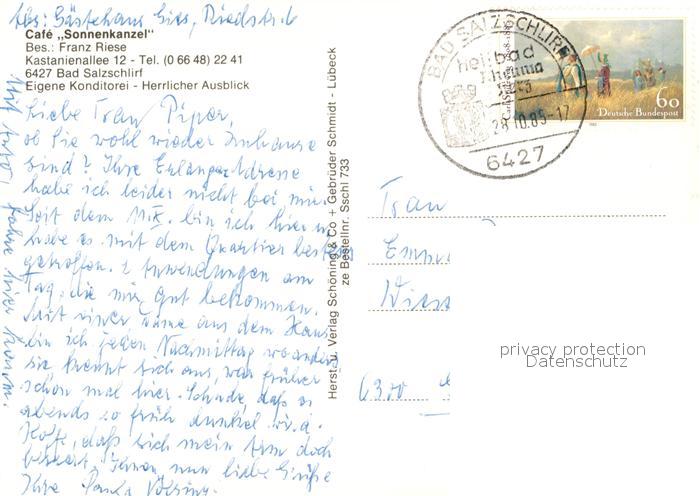 Abs: Gästehaus Gies, Riedstr. 6
Café „Sonnenkanzel"
Bes.: Franz Riese
Kastanienallee 12 - Tel. (0 66 48) 22 41
6427 Bad Salzschlirf
Eigene Konditorei - Herrlicher Ausblick
Liebe Frau Piper,
ob Sie wohl wieder Zuhause
sind? Ihre Erlangeradresse
habe ich leider nicht bei mir.
Seit dem bin ich hier u.
habe es mit dem Quartier bestens
getroffen. 2 Anwendungen am
Tag, die mir gut bekommen.
Mit einer Dame aus dem Haus
bin ich jeden Nachmittag woanders
sie kennt sich aus, war früher
schon mal hier. Schade, daß es
abends so früh dunkel wird.
Hoffe, daß sich mein Arm doch
bessert. Ihnen nun liebe Grüße
Ihre
Mit Auto fahre hier herum.
Herst. u. Verlag Schöning & Co + Gebrüder Schmidt - Lübeck
ze Bestellnr. Sschl 733
BAD SALZSCHLIRF
heilbad
Rheuma
28.10.85-17
6427
60
Deutsche Bundespost
Frau
Emmi
Wies
6300
privacy protection
Datenschutz